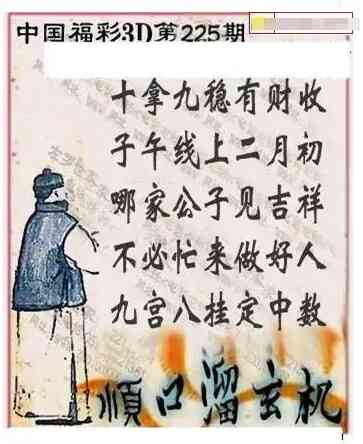 中国福彩3D第225期
十拿九稳有财收
子午线上二月初
哪家公子见吉祥
不必忙来做好人
九宫八挂定中数
顺口溜玄机